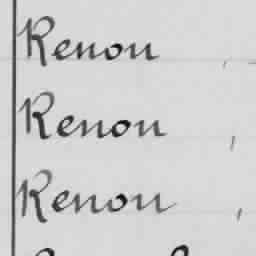 Renou
Renou
Renou